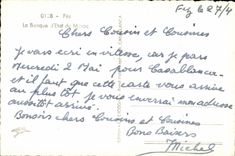 Fez le 27/4
0108 - Fès
La Banque d'Etat du Maroc
Chers Cousin et Cousines
Je vous écri en vitesse, car je pars
Mercredi 2 Mai pour Casablanca
et il faut que cette carte vous arrive
au plus tôt je vous enverrai mon adresse
aussitôt arrivé
Bonsoir chers Cousins et Cousines
Bons Baisers
Michel